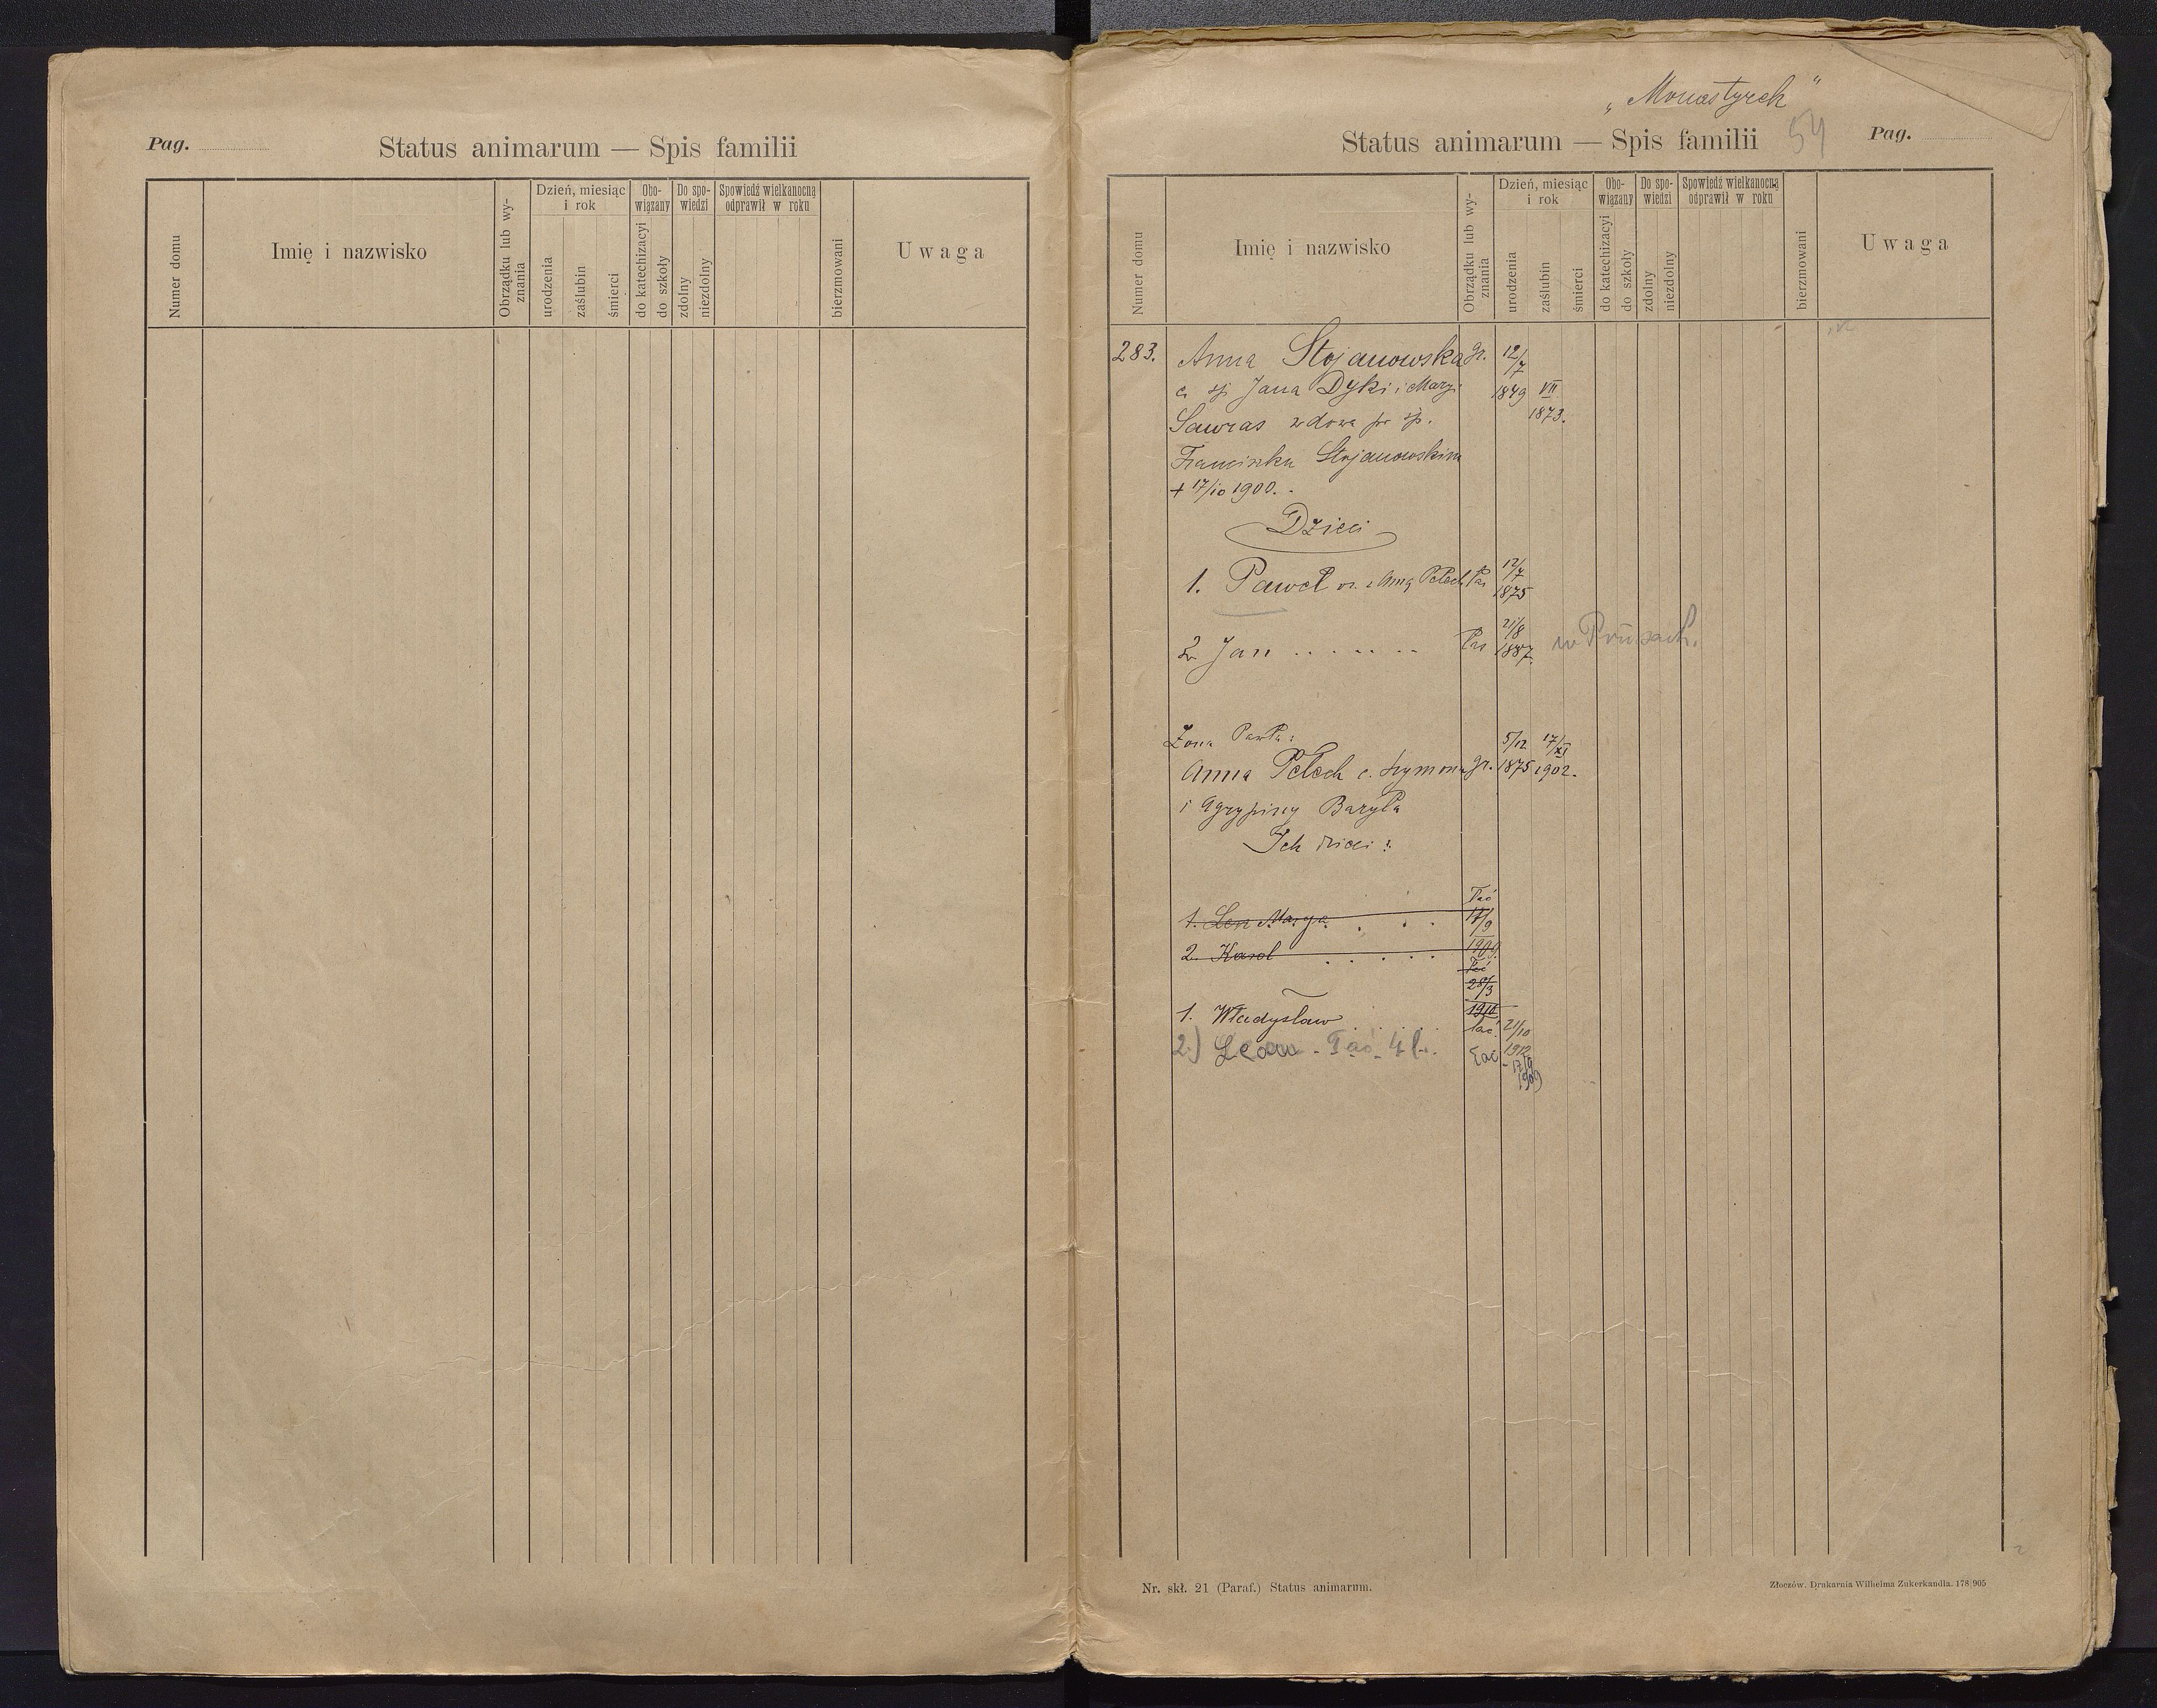 Pag.
Status animarum — Spis familii
Numer domu
Imię i nazwisko
Obrządku lub wy-
znania
Dzień, miesiąc
i rok
urodzenia
zaślubin
śmierci
Obo-
wiązany
do katechizacyi
do szkoły
Do spo-
wiedzi
zdolny
niezdolny
Spowiedź wielkanocną
odprawił w roku
bierzmowani
Uwaga
„Monastyrek"
Status animarum — Spis familii
54
Pag.
Numer domu
Imię i nazwisko
Obrządku lub wy-
znania
Dzień, miesiąc
i rok
urodzenia
zaślubin
śmierci
Obo-
wiązany
do katechizacyi
do szkoły
Do spo-
wiedzi
zdolny
niezdolny
Spowiedź wielkanocną
odprawił w roku
bierzmowani
Uwaga
283. Anna Stojanowska gr. 12/7
c. śp Jana Dyki i Maryi 1849 VII
Sawras wdowa po śp. 1873.
Franciszku Stojanowskim
+ 17/10 1900.
Dzieci
1. Paweł oż. z Anną Pełech Łać 12/7
1875
2. Jan ....... Łać 21/8
1887 w Prusach.
Żona Pawła: 5/12 17/XI
Anna Pełech c. Szymona gr. 1875 1902.
i Agrypiny Baryła
Ich dzieci:
Łać
1. Marya 17/9
2. Karol 1909.
Łać
28/3
1. Władysław łać. 21/10
1912
2.) Leon - Łać. 4 l. Łać 17/9
1909
Nr. skł. 21 (Paraf.) Status animarum.
Złoczów. Drukarnia Wilhelma Zukerkandla. 178 905